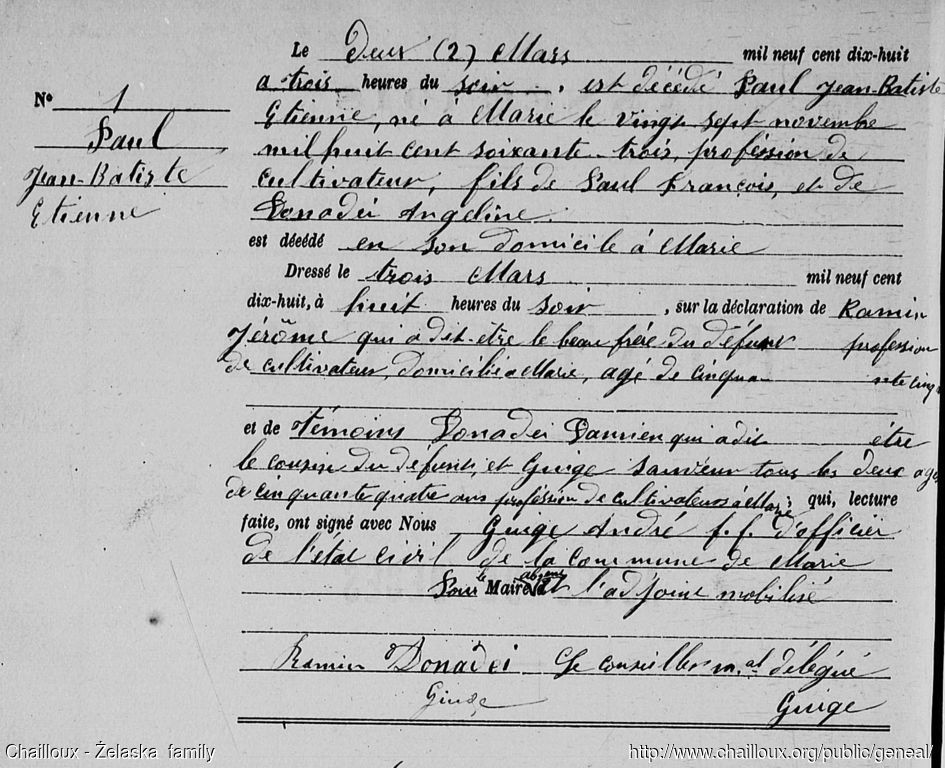 Le Deux (2) Mars mil neuf cent dix-huit
N° 1
Paul
Jean-Batiste
Etienne
a trois heures du soir, est décédé Paul Jean-Batiste
Etienne, né à Marie le vingt sept novembre
mil huit cent soixante-trois, profession de
cultivateur, fils de Paul François, et de
Donadei Angeline.
est décédé en son domicile à Marie
Dressé le trois Mars mil neuf cent
dix-huit, à huit heures du soir, sur la déclaration de Ramin
Jérôme qui a dit être le beau frère du défunt profession
de cultivateur, domicilié à Marie, agé de cinqua-nte cinq
et de témoins Donadei Damien qui a dit être
le cousin du défunt, et Guige Sauveur tous les deux agés
de cinquante quatre ans profession de cultivateurs à Marie; qui, lecture
faite, ont signé avec Nous Guige André f.f. d'officier
de l'état civil de la commune de Marie
Pour le Maire absent et l'adjoint mobilisé
Ramin Donadei Le conseiller m.al délégué
Guige Guige
Chailloux - Żelaska family http://www.chailloux.org/public/geneal/